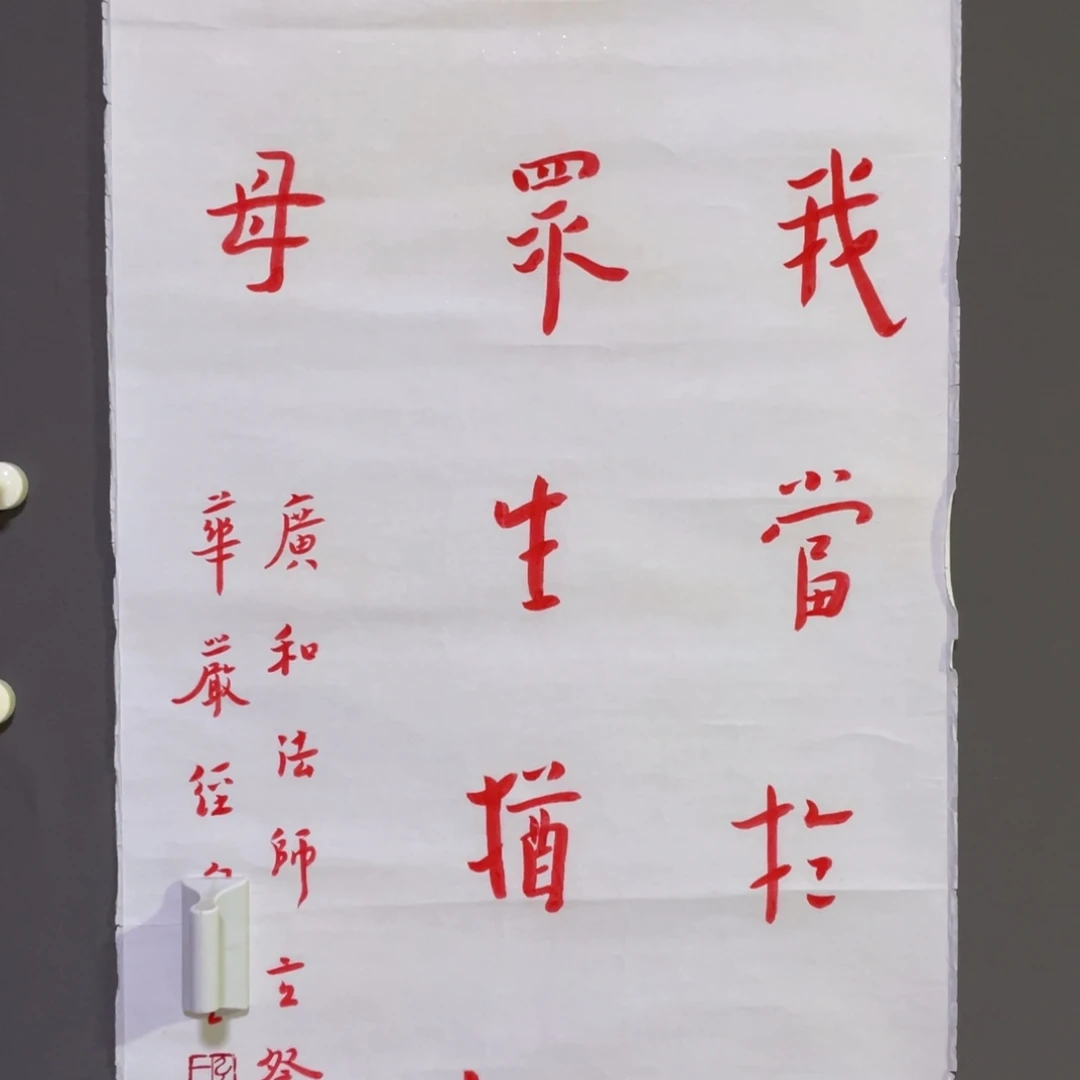 我當於
眾生猶
母
廣和法師立
華嚴經